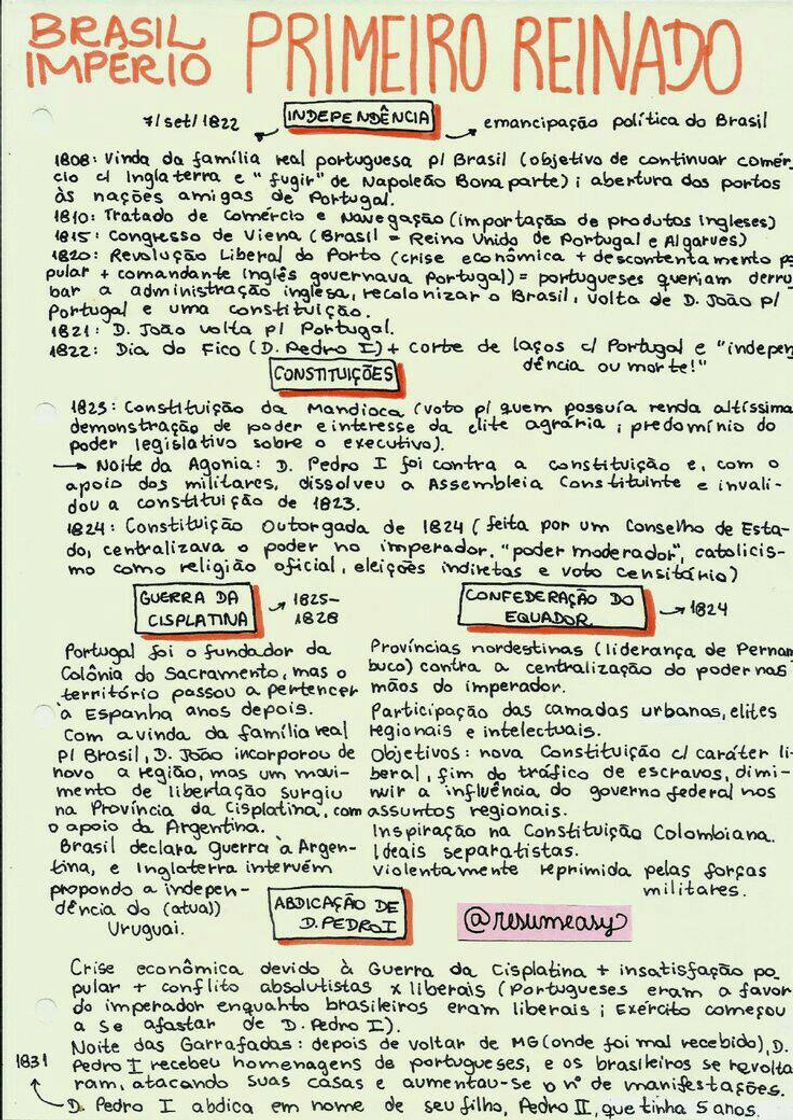 BRASIL IMPÉRIO PRIMEIRO REINADO
7/set/1822 INDEPENDÊNCIA emancipação política do Brasil
1808: Vinda da família real portuguesa p/ Brasil (objetivo de continuar comér-
cio c/ Inglaterra e "fugir" de Napoleão Bonaparte); abertura dos portos
às nações amigas de Portugal.
1810: Tratado de Comércio e Navegação (importação de produtos ingleses)
1815: Congresso de Viena (Brasil = Reino Unido de Portugal e Algarves)
1820: Revolução Liberal do Porto (crise econômica + descontentamento po
pular + comandante inglês governava Portugal) = portugueses queriam derru
bar a administração inglesa, recolonizar o Brasil, volta de D. João p/
Portugal e uma constituição.
1821: D. João volta p/ Portugal.
1822: Dia do Fico (D. Pedro I) + corte de laços c/ Portugal e "indepen
dência ou morte!"
CONSTITUIÇÕES
1823: Constituição da Mandioca (voto p/ quem possuía renda altíssima
demonstração de poder e interesse da elite agrária; predomínio do
poder legislativo sobre o executivo).
→ Noite da Agonia: D. Pedro I foi contra a constituição e, com o
apoio dos militares, dissolveu a Assembleia Constituinte e invali-
dou a constituição de 1823.
1824: Constituição Outorgada de 1824 (feita por um Conselho de Esta-
do, centralizava o poder no imperador, "poder moderador", catolicis-
mo como religião oficial, eleições indiretas e voto censitário)
GUERRA DA CISPLATINA → 1825-
1828
Portugal foi o fundador da
Colônia do Sacramento, mas o
território passou a pertencer
à Espanha anos depois.
Com a vinda da família real
p/ Brasil, D. João incorporou de
novo a região, mas um movi-
mento de libertação surgiu
na Província da Cisplatina, com
o apoio da Argentina.
Brasil declara guerra à Argen-
tina, e Inglaterra intervém
propondo a indepen-
dência do (atual)
Uruguai.
CONFEDERAÇÃO DO
EQUADOR → 1824
Províncias nordestinas (liderança de Pernam
buco) contra a centralização do poder nas
mãos do imperador.
Participação das camadas urbanas, elites
regionais e intelectuais.
Objetivos: nova Constituição c/ caráter li-
beral, fim do tráfico de escravos, dimi-
nuir a influência do governo federal nos
assuntos regionais.
Inspiração na Constituição Colombiana.
Ideais separatistas.
Violentamente reprimida pelas forças
militares.
ABDICAÇÃO DE
D. PEDRO I
@resumeasy
Crise econômica devido à Guerra da Cisplatina + insatisfação po
pular + conflito absolutistas x liberais (Portugueses eram a favor
do imperador enquanto brasileiros eram liberais; Exército começou
a se afastar de D. Pedro I).
Noite das Garrafadas: depois de voltar de MG (onde foi mal recebido), D.
1831 Pedro I recebeu homenagens de portugueses, e os brasileiros se revolta
ram, atacando suas casas e aumentou-se o nº de manifestações.
D. Pedro I abdica em nome de seu filho, Pedro II, que tinha 5 anos.